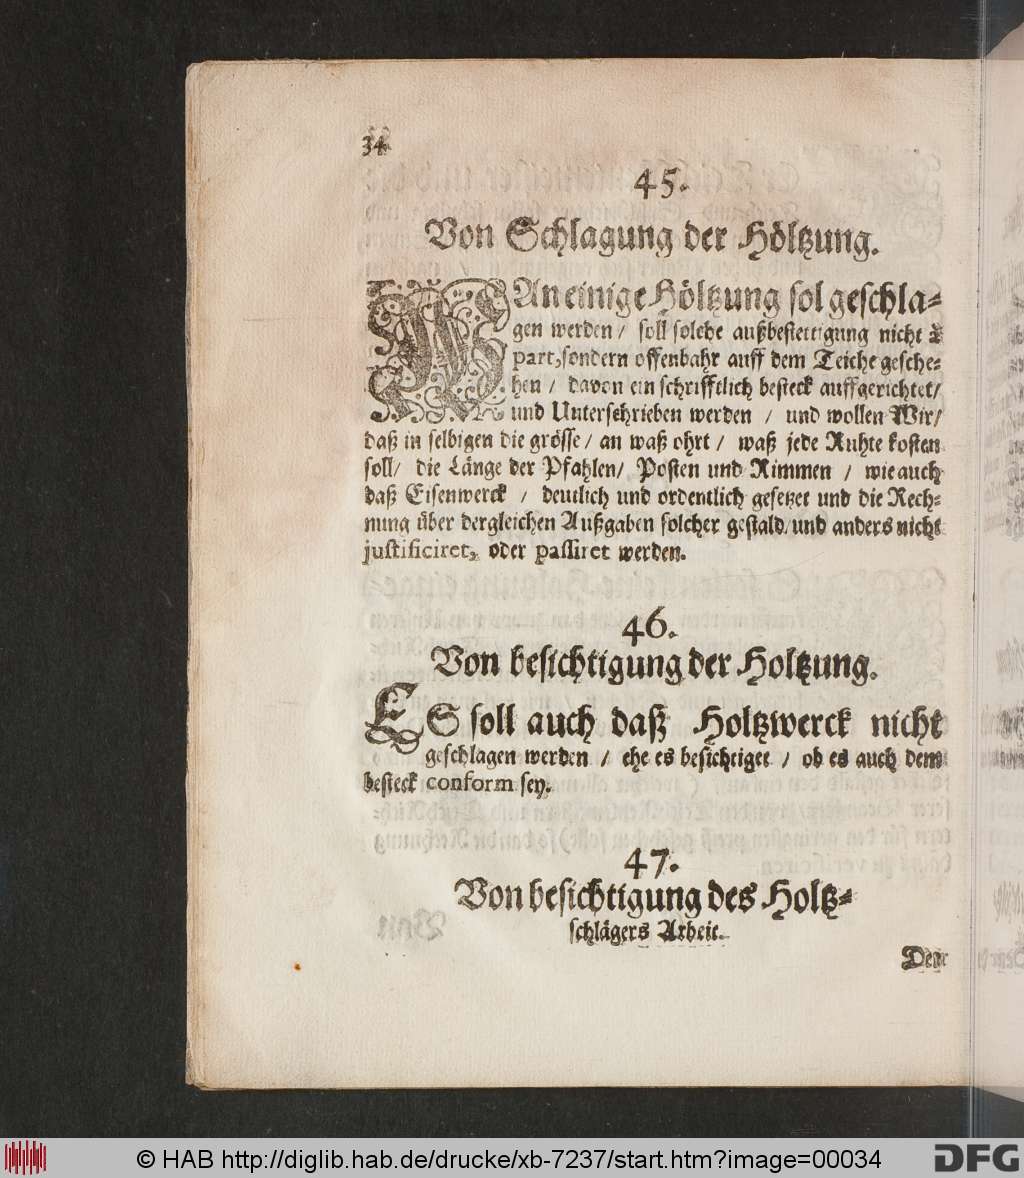 34
45.
Von Schlagung der Höltzung.
WAn einige Höltzung sol geschla-
gen werden / soll solche außbestettigung nicht à
part, sondern offenbahr auff dem Teiche gesche-
hen / davon ein schrifftlich besteck auffgerichtet/
und Unterschrieben werden / und wollen Wir/
daß in selbigen die grösse / an waß ohrt / waß jede Ruhte kosten
soll / die Länge der Pfahlen / Posten und Rimmen / wie auch
daß Eisenwerck / deutlich und ordentlich gesetzet und die Rech-
nung über dergleichen Außgaben solcher gestald und anders nicht
justificiret, oder passiret werden.
46.
Von besichtigung der Holtzung.
ES soll auch daß Holtzwerck nicht
geschlagen werden / ehe es besichtiget / ob es auch dem
besteck conform sey.
47.
Von besichtigung des Holtz-
schlägers Arbeit.
© HAB http://diglib.hab.de/drucke/xb-7237/start.htm?image=00034
DFG